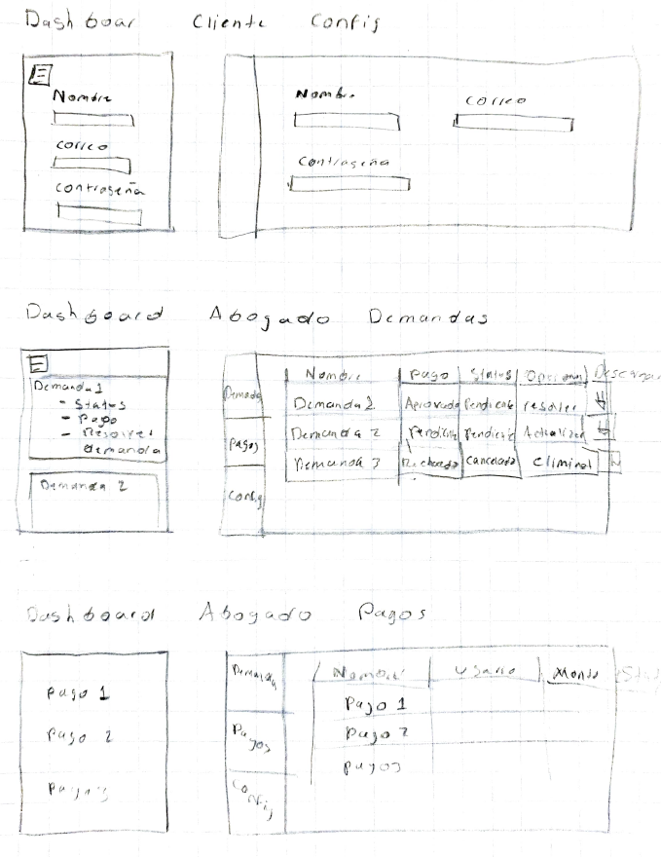 Dashboar Cliente Config
Nombre
correo
contraseña
Nombre
correo
contraseña
Dashboard Abogado Demandas
Demanda 1
- Status
- Pago
- Resolver
demanda
Demanda 2
Demanda
pagos
config
Nombre Pago Status Opciones
Demanda 1 Aprovado Pendiente resolver
Demanda 2 Pendiente Pendiente Actualizar
Demanda 3 Rechazado cancelado Eliminar
Dashboard Abogado Pagos
pago 1
pago 2
pago 3
Demanda
Pagos
Config
Nombre Usuario Monto
Pago 1
Pago 2
pago 3